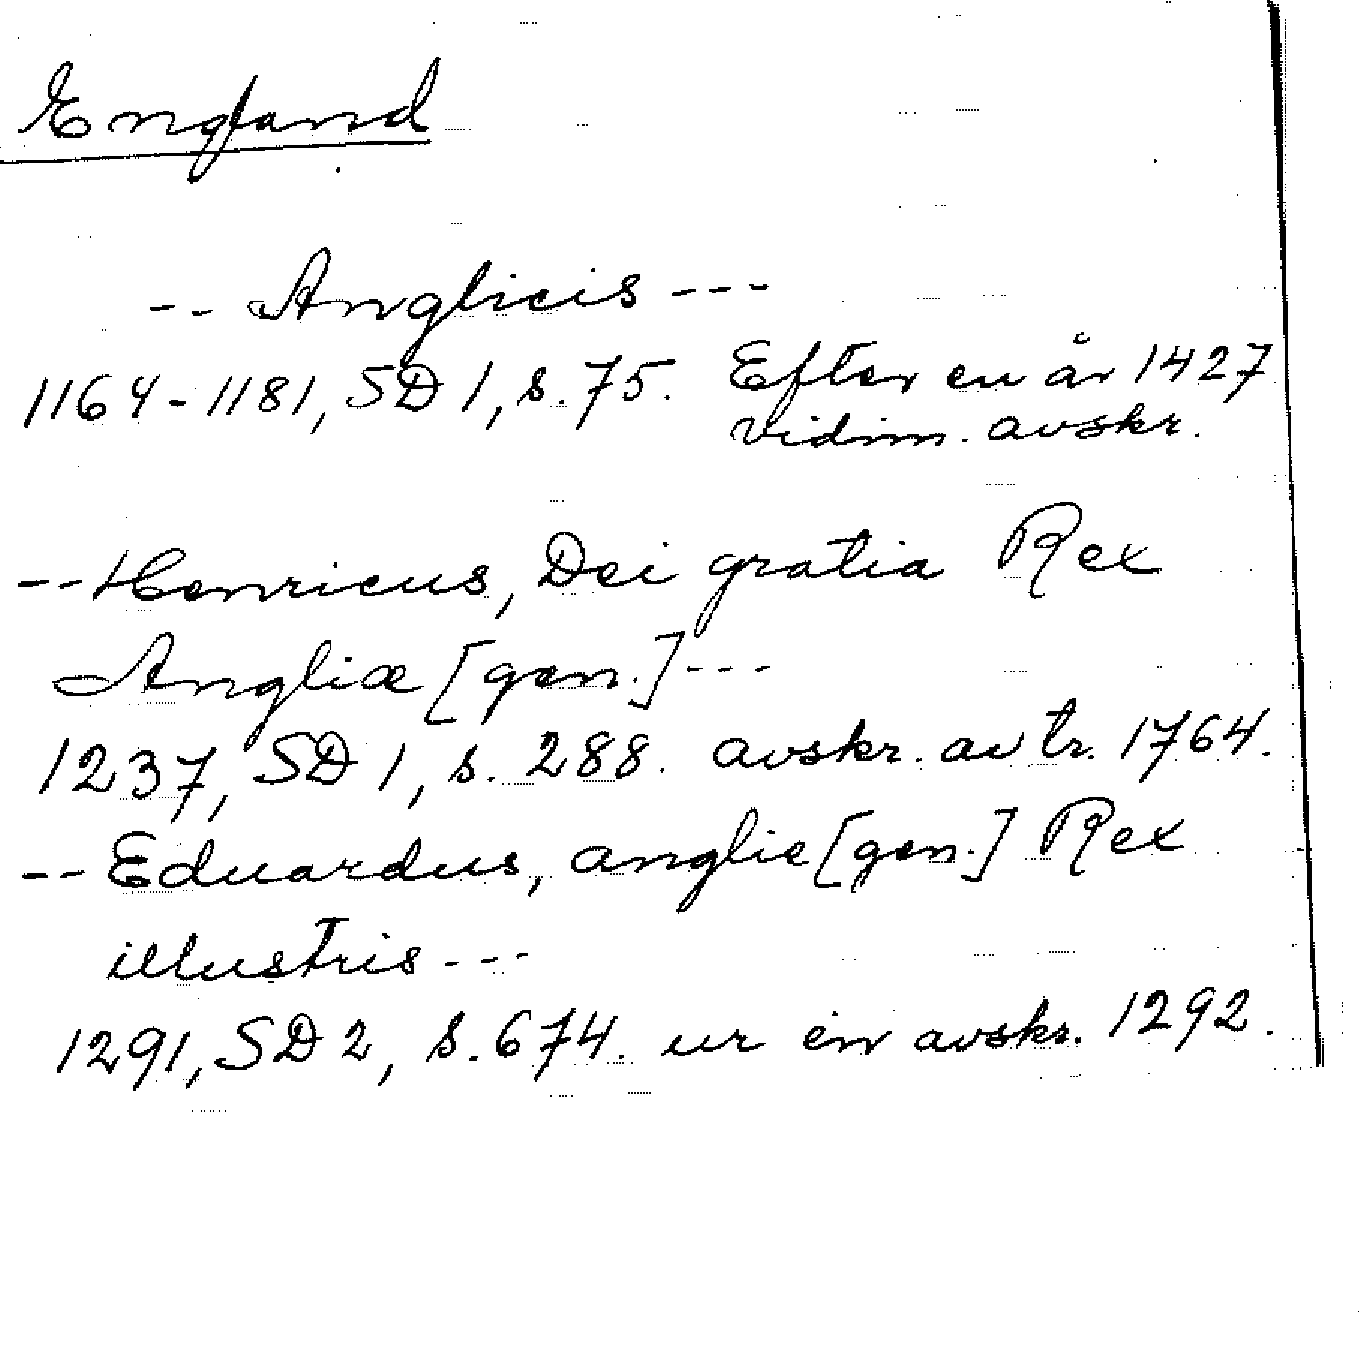 England
-- Anglicis ---
1164-1181, SD 1, s. 75. Efter en år 1427
vidim. avskr.
-- Henricus, Dei gratia Rex
Angliæ [gen.] ---
1237, SD 1, s. 288. avskr. av tr. 1764.
-- Eduardus, anglie [gen.] Rex
illustris ---
1291, SD 2, s. 674. ur en avskr. 1292.